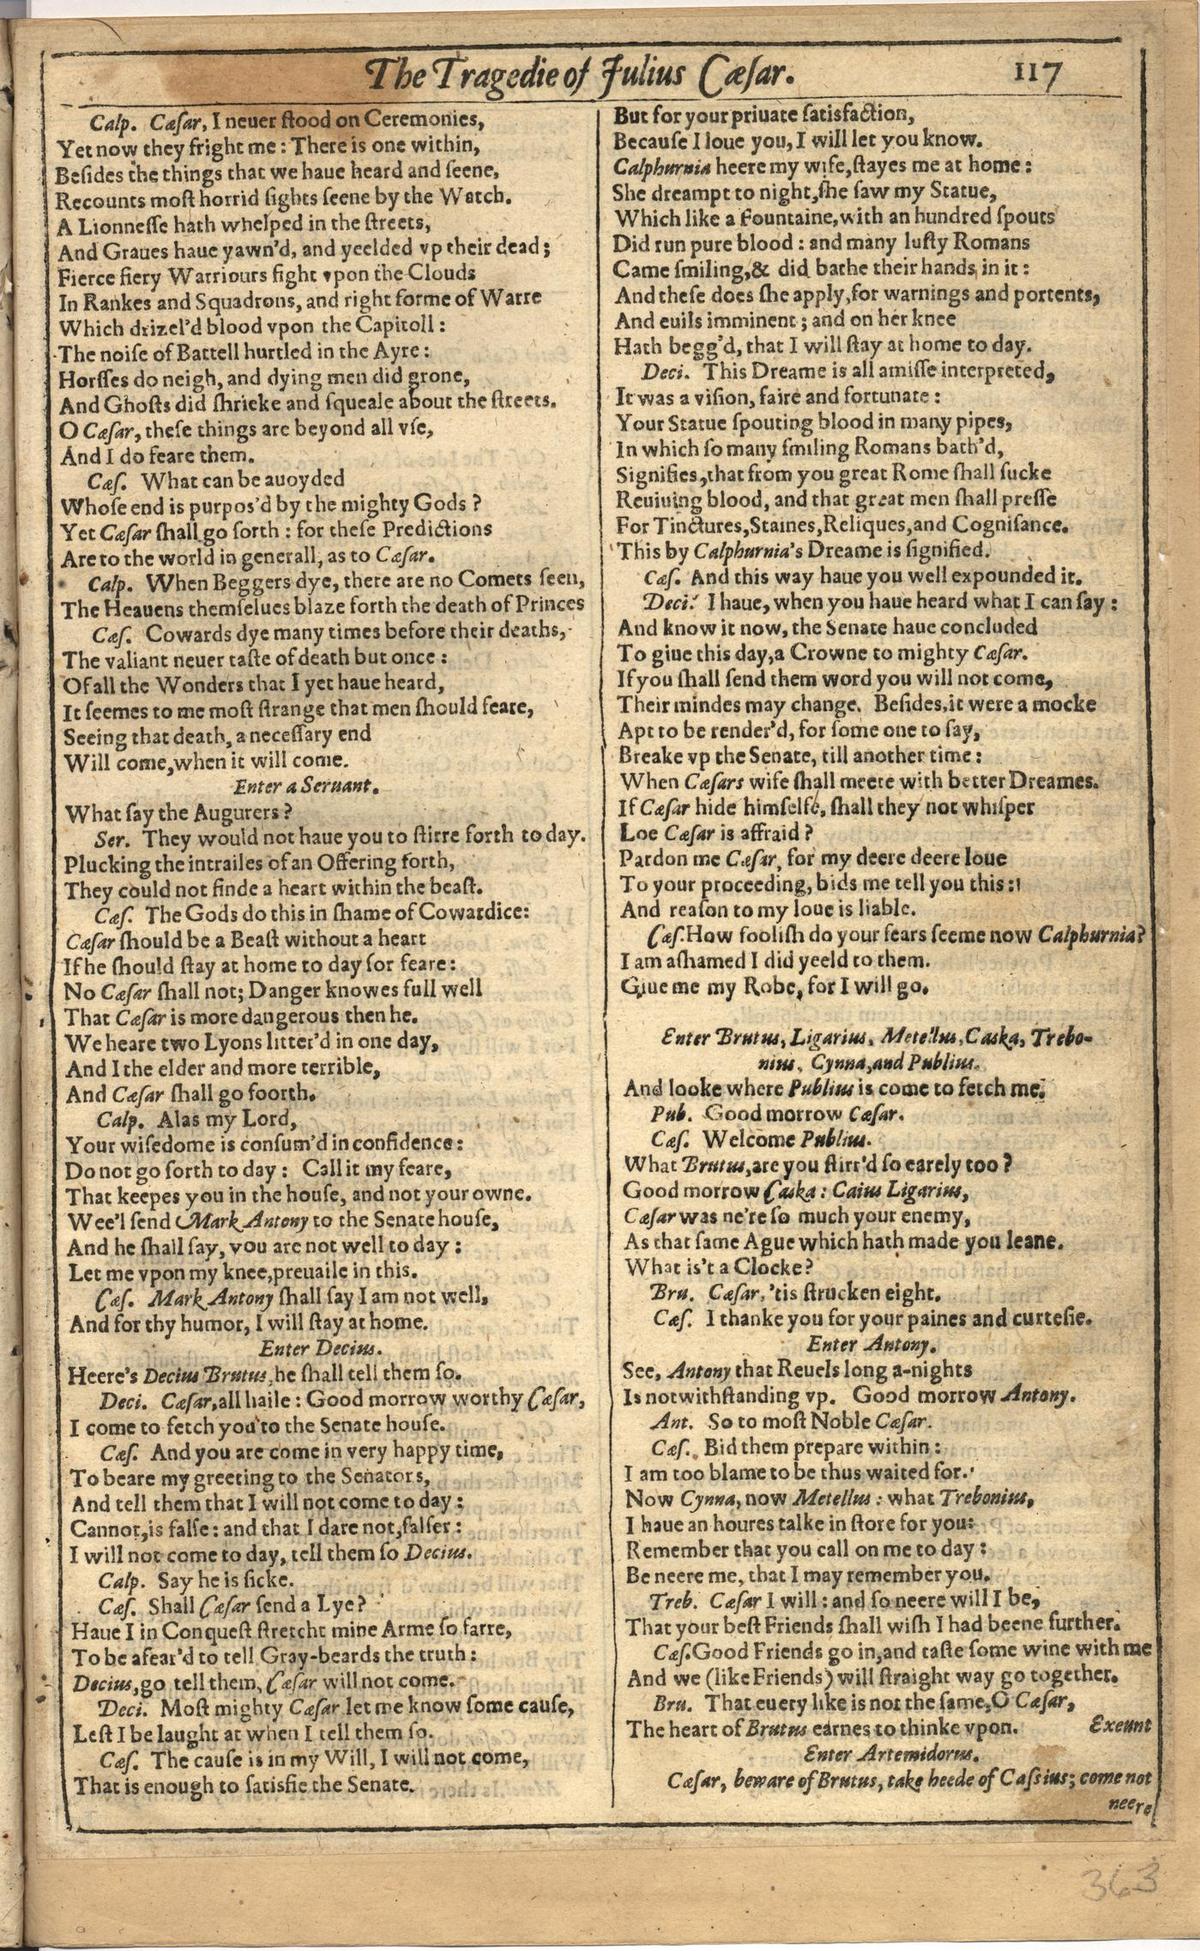 The Tragedie of Julius Cæſar. 117
Calp. Cæſar, I neuer ſtood on Ceremonies,
Yet now they fright me: There is one within,
Beſides the things that we haue heard and ſeene,
Recounts moſt horrid ſights ſeene by the Watch.
A Lionneſſe hath whelped in the ſtreets,
And Graues haue yawn'd, and yeelded vp their dead;
Fierce fiery Warriours fight vpon the Clouds
In Rankes and Squadrons, and right forme of Warre
Which drizel'd blood vpon the Capitoll:
The noiſe of Battell hurtled in the Ayre:
Horſſes do neigh, and dying men did grone,
And Ghoſts did ſhrieke and ſqueale about the ſtreets.
O Cæſar, theſe things are beyond all vſe,
And I do feare them.
Cæſ. What can be auoyded
Whoſe end is purpos'd by the mighty Gods?
Yet Cæſar ſhall go forth: for theſe Predictions
Are to the world in generall, as to Cæſar.
Calp. When Beggers dye, there are no Comets ſeen,
The Heauens themſelues blaze forth the death of Princes
Cæſ. Cowards dye many times before their deaths,
The valiant neuer taſte of death but once:
Of all the Wonders that I yet haue heard,
It ſeemes to me moſt ſtrange that men ſhould feare,
Seeing that death, a neceſſary end
Will come, when it will come.
Enter a Seruant.
What ſay the Augurers?
Ser. They would not haue you to ſtirre forth to day.
Plucking the intrailes of an Offering forth,
They could not finde a heart within the beaſt.
Cæſ. The Gods do this in ſhame of Cowardice:
Cæſar ſhould be a Beaſt without a heart
If he ſhould ſtay at home to day for feare:
No Cæſar ſhall not; Danger knowes full well
That Cæſar is more dangerous then he.
We heare two Lyons litter'd in one day,
And I the elder and more terrible,
And Cæſar ſhall go foorth.
Calp. Alas my Lord,
Your wiſedome is conſum'd in confidence:
Do not go forth to day: Call it my feare,
That keepes you in the houſe, and not your owne.
Wee'l ſend Mark Antony to the Senate houſe,
And he ſhall ſay, you are not well to day:
Let me vpon my knee, preuaile in this.
Cæſ. Mark Antony ſhall ſay I am not well,
And for thy humor, I will ſtay at home.
Enter Decius.
Heere's Decius Brutus, he ſhall tell them ſo.
Deci. Cæſar, all haile: Good morrow worthy Cæſar,
I come to fetch you to the Senate houſe.
Cæſ. And you are come in very happy time,
To beare my greeting to the Senators,
And tell them that I will not come to day:
Cannot, is falſe: and that I dare not, falſer:
I will not come to day, tell them ſo Decius.
Calp. Say he is ſicke.
Cæſ. Shall Cæſar ſend a Lye?
Haue I in Conqueſt ſtretcht mine Arme ſo farre,
To be afear'd to tell Gray-beards the truth:
Decius, go tell them, Cæſar will not come.
Deci. Moſt mighty Cæſar let me know ſome cauſe,
Leſt I be laught at when I tell them ſo.
Cæſ. The cauſe is in my Will, I will not come,
That is enough to ſatisfie the Senate.
But for your priuate ſatisfaction,
Becauſe I loue you, I will let you know.
Calphurnia heere my wife, ſtayes me at home:
She dreampt to night, ſhe ſaw my Statue,
Which like a Fountaine, with an hundred ſpouts
Did run pure blood: and many luſty Romans
Came ſmiling, & did bathe their hands in it:
And theſe does ſhe apply, for warnings and portents,
And euils imminent; and on her knee
Hath begg'd, that I will ſtay at home to day.
Deci. This Dreame is all amiſſe interpreted,
It was a viſion, faire and fortunate:
Your Statue ſpouting blood in many pipes,
In which ſo many ſmiling Romans bath'd,
Signifies, that from you great Rome ſhall ſucke
Reuiuing blood, and that great men ſhall preſſe
For Tinctures, Staines, Reliques, and Cogniſance.
This by Calphurnia's Dreame is ſignified.
Cæſ. And this way haue you well expounded it.
Deci. I haue, when you haue heard what I can ſay:
And know it now, the Senate haue concluded
To giue this day, a Crowne to mighty Cæſar.
If you ſhall ſend them word you will not come,
Their mindes may change. Beſides, it were a mocke
Apt to be render'd, for ſome one to ſay,
Breake vp the Senate, till another time:
When Cæſars wife ſhall meete with better Dreames.
If Cæſar hide himſelfe, ſhall they not whiſper
Loe Cæſar is affraid?
Pardon me Cæſar, for my deere deere loue
To your proceeding, bids me tell you this:
And reaſon to my loue is liable.
Cæſ. How fooliſh do your fears ſeeme now Calphurnia?
I am aſhamed I did yeeld to them.
Giue me my Robe, for I will go.
Enter Brutus, Ligarius, Metellus, Caska, Trebo-
nius, Cynna, and Publius.
And looke where Publius is come to fetch me.
Pub. Good morrow Cæſar.
Cæſ. Welcome Publius.
What Brutus, are you ſtirr'd ſo earely too?
Good morrow Caska: Caius Ligarius,
Cæſar was ne're ſo much your enemy,
As that ſame Ague which hath made you leane.
What is't a Clocke?
Bru. Cæſar, 'tis ſtrucken eight.
Cæſ. I thanke you for your paines and curteſie.
Enter Antony.
See, Antony that Reuels long a-nights
Is notwithſtanding vp. Good morrow Antony.
Ant. So to moſt Noble Cæſar.
Cæſ. Bid them prepare within:
I am too blame to be thus waited for.
Now Cynna, now Metellus: what Trebonius,
I haue an houres talke in ſtore for you:
Remember that you call on me to day:
Be neere me, that I may remember you.
Treb. Cæſar I will: and ſo neere will I be,
That your beſt Friends ſhall wiſh I had beene further.
Cæſ. Good Friends go in, and taſte ſome wine with me
And we (like Friends) will ſtraight way go together.
Bru. That euery like is not the ſame, O Cæſar,
The heart of Brutus earnes to thinke vpon. Exeunt
Enter Artemidorus.
Cæſar, beware of Brutus, take heede of Caſsius; come not
neere
363